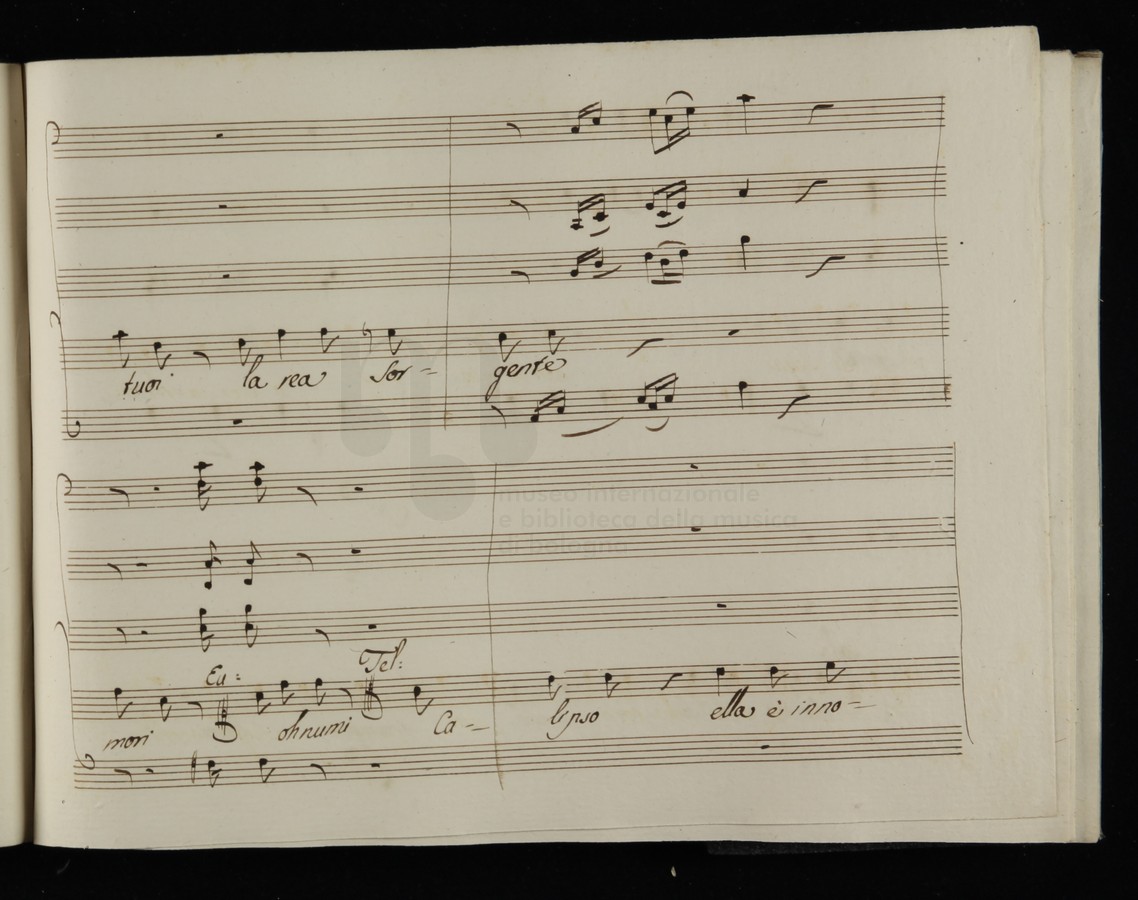 tuoi la rea Sor= gente
museo internazionale
e biblioteca della musica
di bologna
Eu: Tel:
mori oh numi Ca= lipso ella è inno=